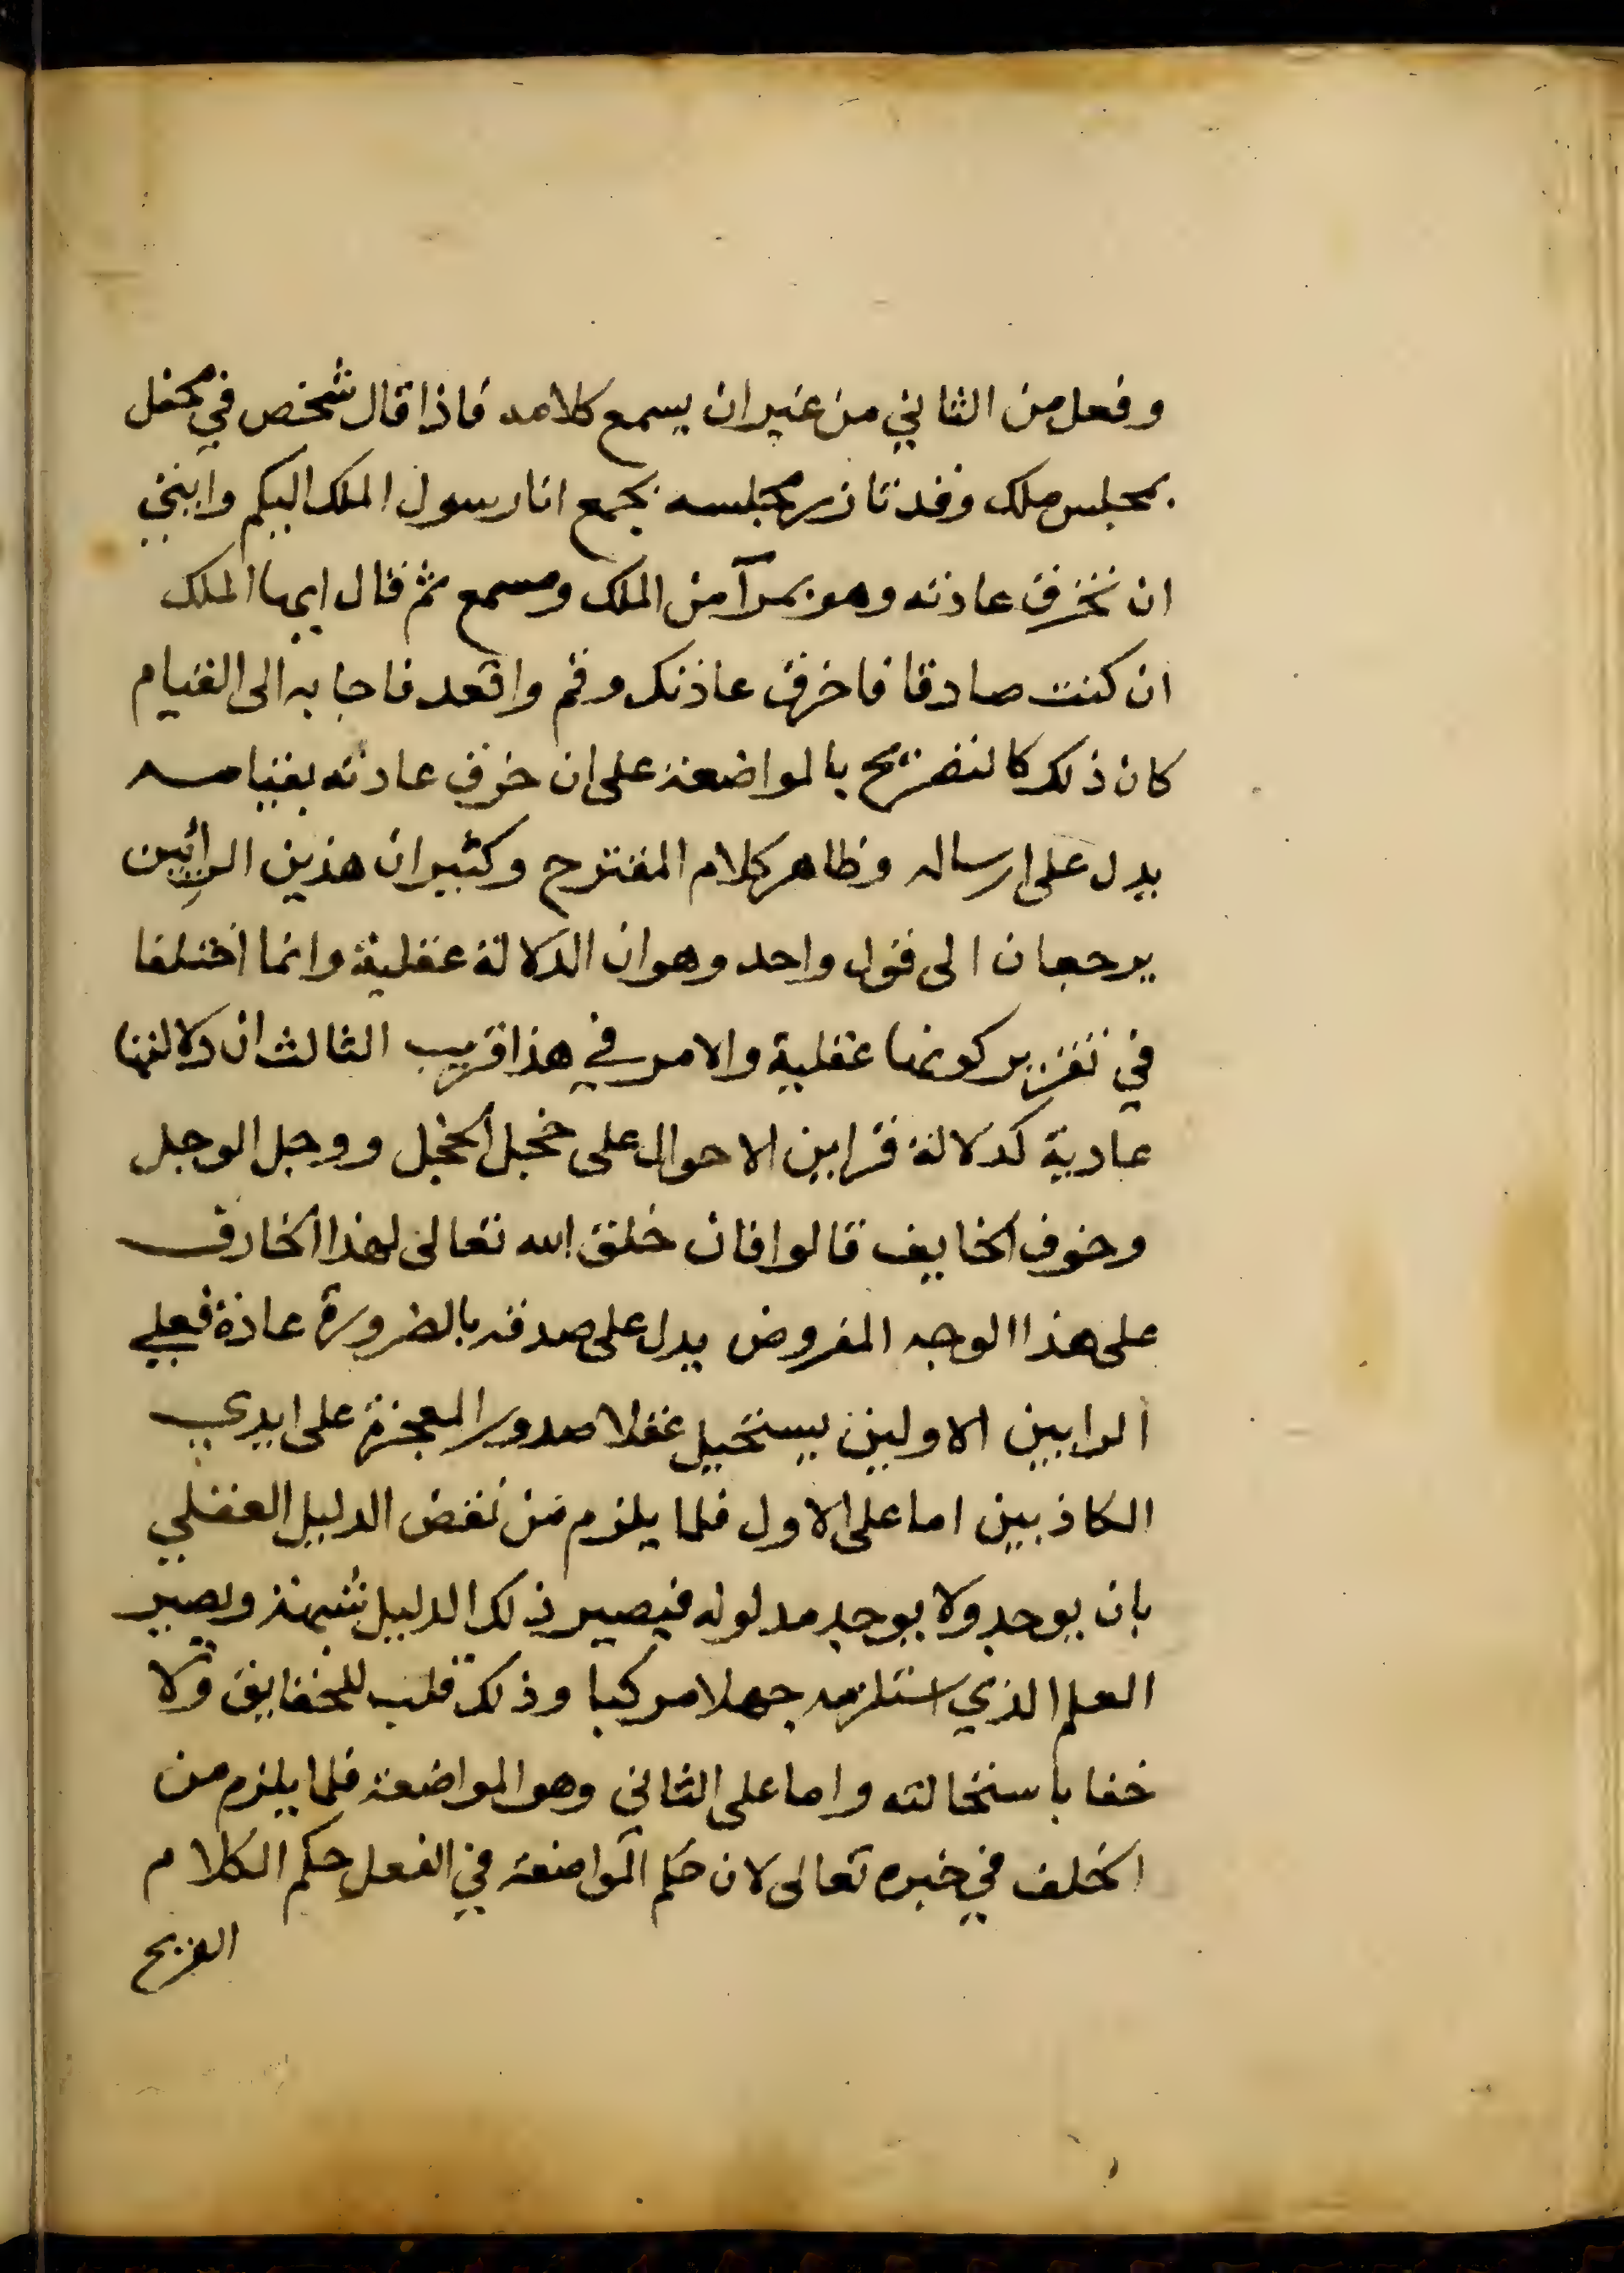 وفعل من الثاني من غير ان يسمع كلامه فاذا قال شخص في محفل
بمجلس ملك وقد تازر مجلسه بجمع انا رسول الملك اليكم وايتي
ان تخرق عادته وهو بمرآ من الملك ومسمع ثم قال ايها الملك
ان كنت صادقا فاخرق عادتك وقم واقعد فاجابه الى القيام
كان ذلك كالتصريح بالمواضعة على ان خرق عادته بقيامه
يدل على ارساله وظاهر كلام المقترح وكثير ان هذين الرائيين
يرجعان الى قول واحد وهو ان الدلالة عقلية وانما اختلفا
في تقرير كونها عقلية والامر في هذا قريب الثالث ان دلالتها
عادية كدلالة قراين الاحوال على خجل الخجل ووجل الوجل
وخوف الخايف قالوا فان خلق الله تعالى لهذا الخارق
على هذا الوجه المفروض يدل على صدقه بالضرورة عادة فعلى
الرايين الاولين يستحيل عقلا صدور المعجزة على ايدي
الكاذبين اما على الاول فلما يلزم من نقض الدليل العقلي
بان يوجد ولا يوجد مدلوله فيصير ذلك الدليل شبهة ويصير
العلم الذي استلزمه جهلا مركبا وذلك قلب للحقايق ولا
خفا باستحالته واما على الثاني وهو المواضعة فلما يلزم من
الخلف في خبره تعالى لان حكم المواضعة في الفعل حكم الكلام